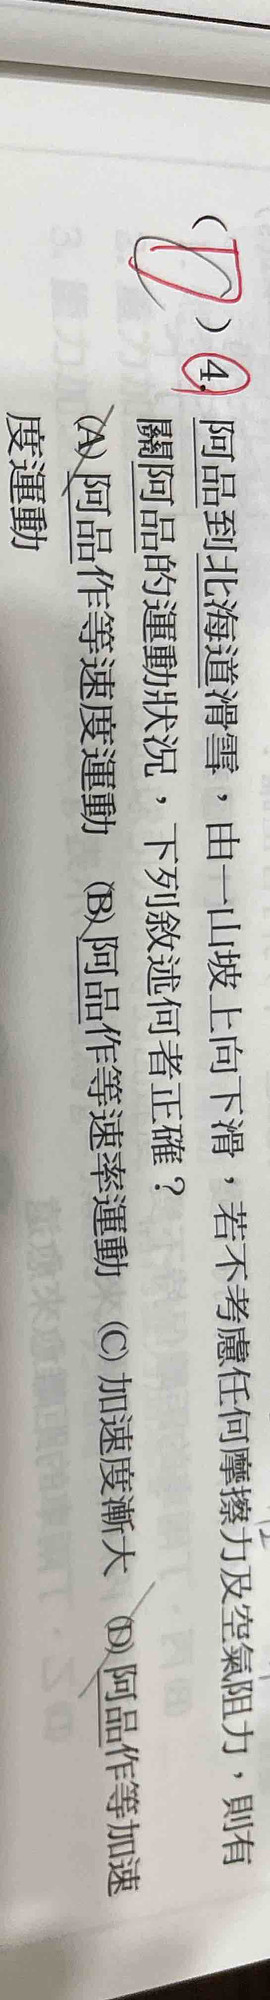 ( D ) 4. 阿品到北海道滑雪，由一山坡上向下滑，若不考慮任何摩擦力及空氣阻力，則有
關阿品的運動狀況，下列敘述何者正確？
(A)阿品作等速度運動 (B)阿品作等速率運動 (C)加速度漸大 (D)阿品作等加速
度運動